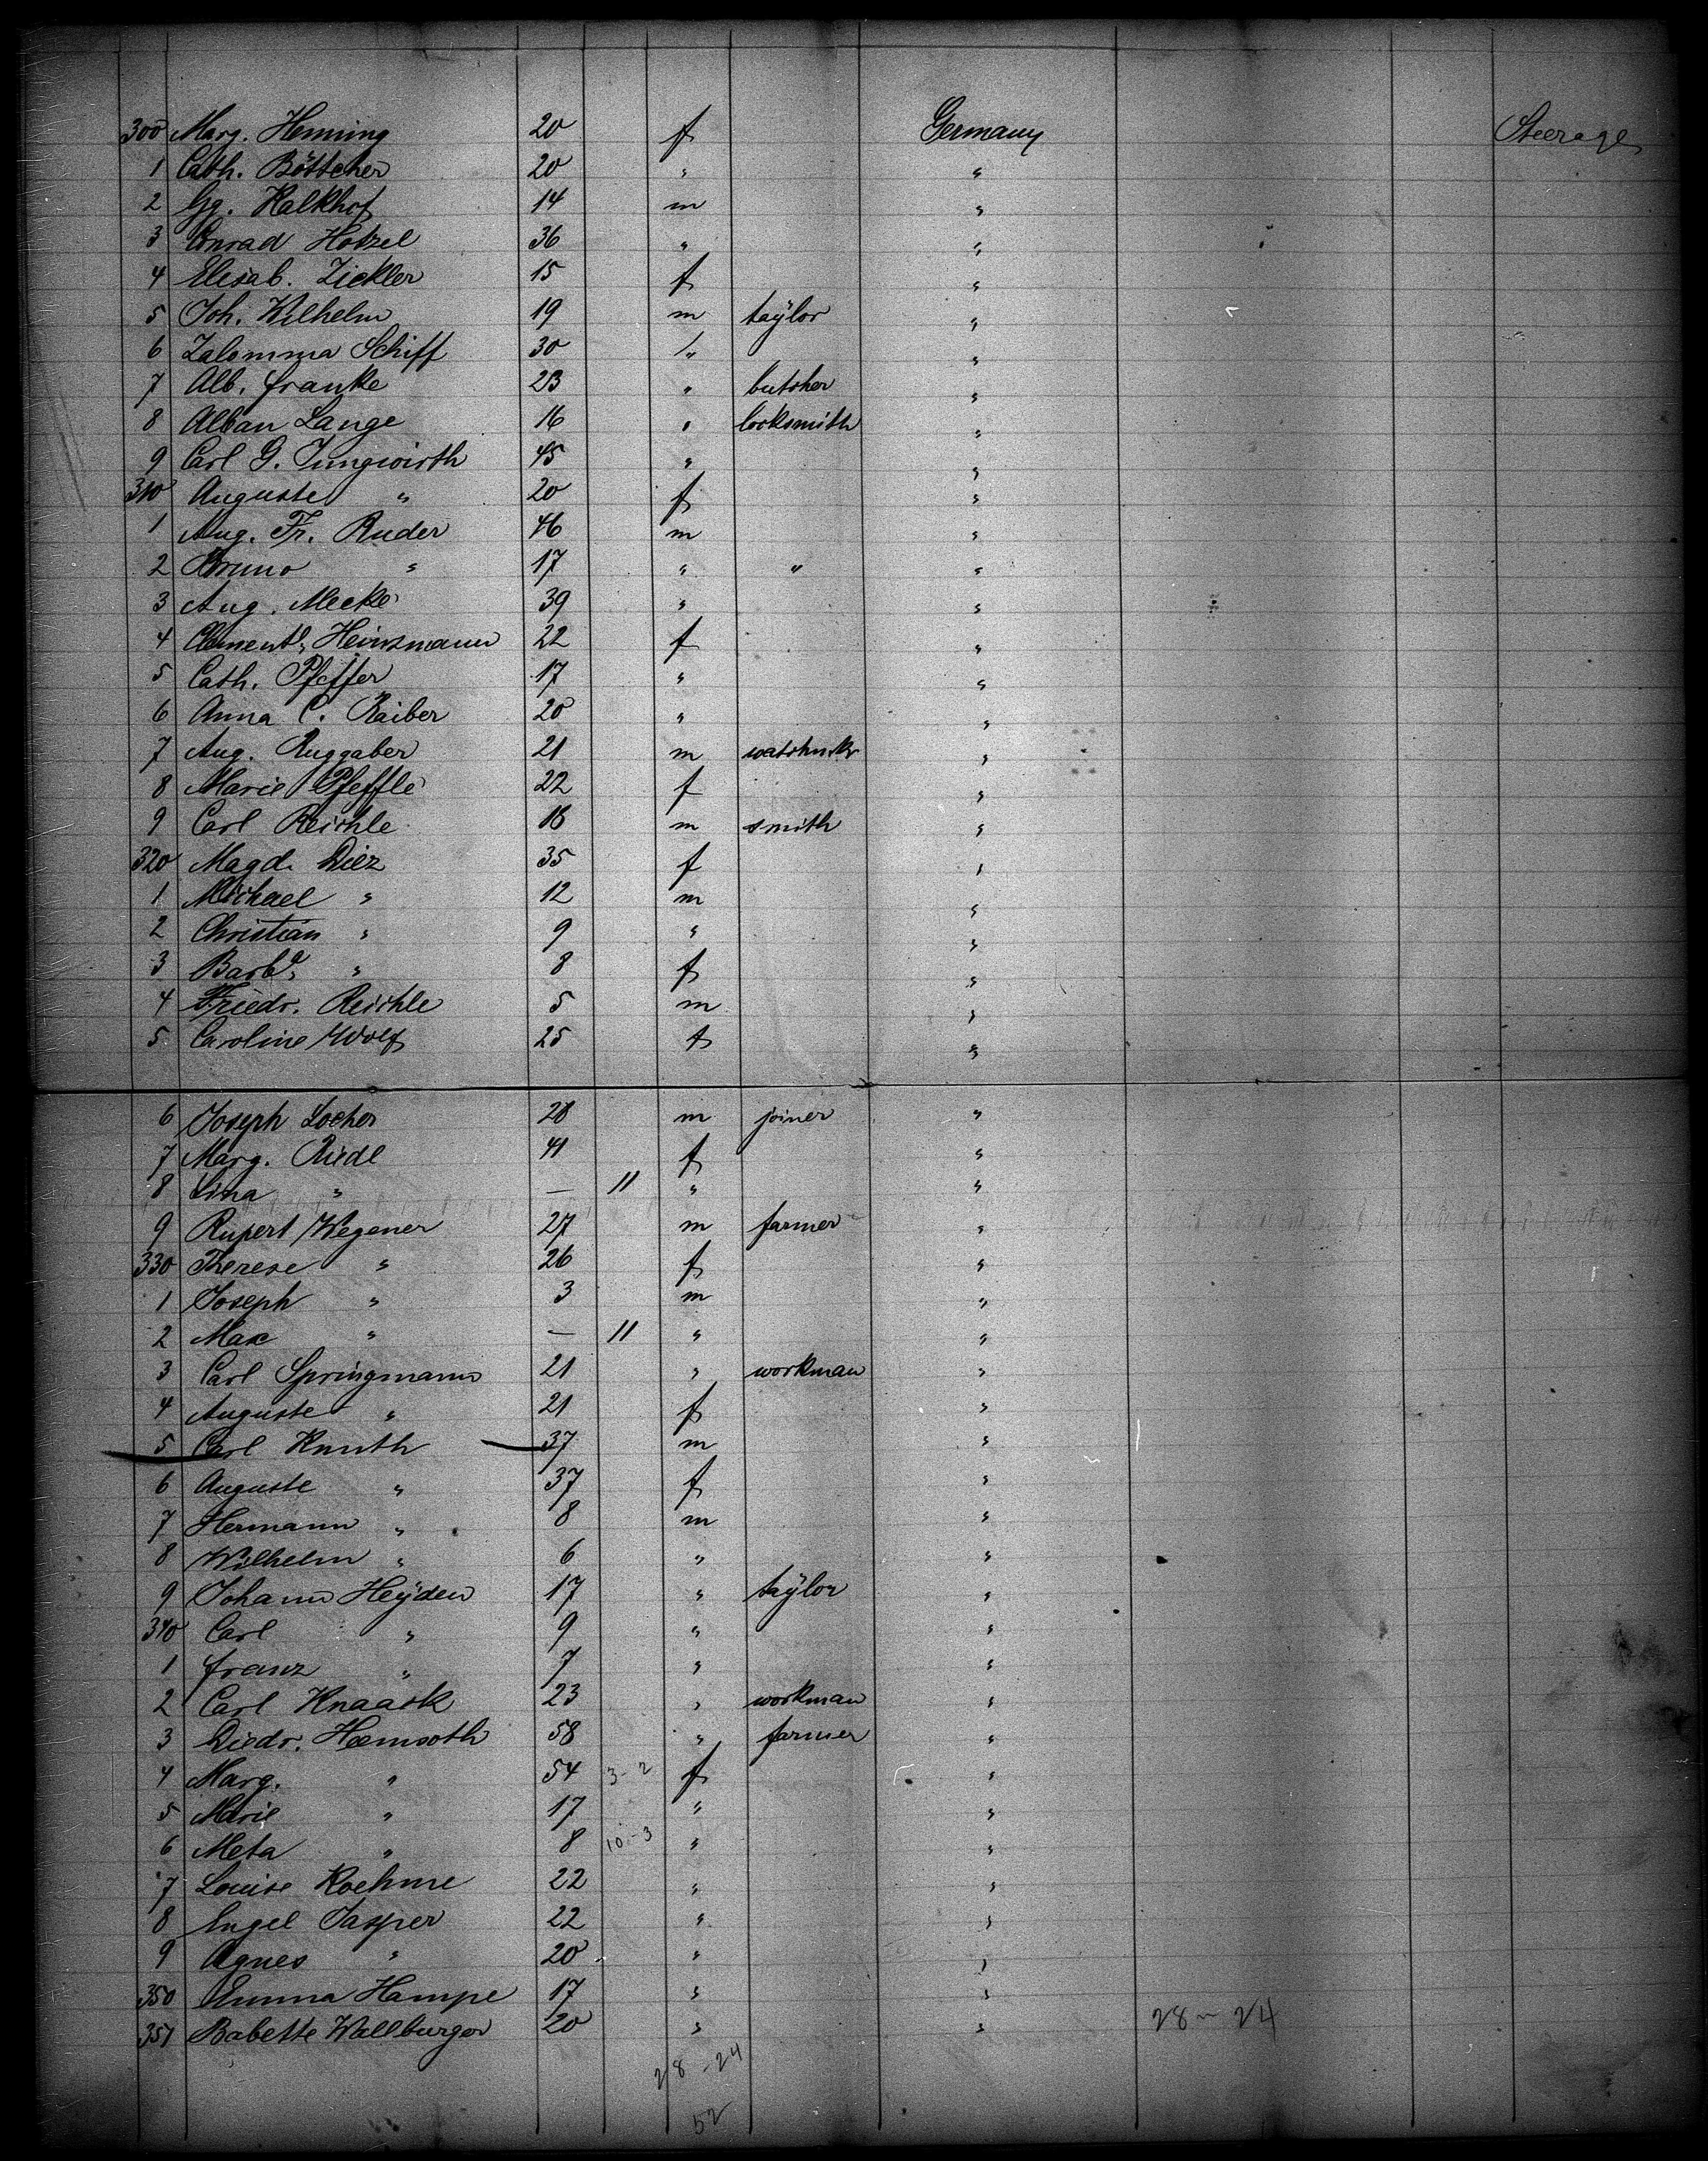 300 Marg. Henning 20 f Germany Steerage
1 Cath. Böttcher 20 " "
2 Gg. Kalkhof 14 m "
3 Conrad Hotzel 36 " "
4 Elisab. Zickler 15 f "
5 Joh. Wilhelm 19 m taÿlor "
6 Zalomma Schiff 30 " "
7 Alb. Franke 23 " butcher "
8 Alban Lange 16 " locksmith "
9 Carl G. Jungwirth 45 " "
310 Auguste " 20 f "
1 Aug. Fr. Ruder 46 m "
2 Bruno " 17 " " "
3 Aug. Mecke 39 " "
4 Clementᵉ Heinzmann 22 f "
5 Cath. Pfeffer 17 " "
6 Anna C. Raiber 20 " "
7 Aug. Ruggaber 21 m watchmkr "
8 Marie Pfeffle 22 f "
9 Carl Reichle 18 m smith "
320 Magd. Diez 35 f "
1 Michael " 12 m "
2 Christian " 9 " "
3 Barbᵃ " 8 f "
4 Friedr. Reichle 5 m "
5 Caroline Wolf 25 f "
6 Joseph Locher 28 m joiner "
7 Marg. Riedl 41 f "
8 Lina " — 11 " "
9 Rupert Wegener 27 m farmer "
330 Therese " 26 f "
1 Joseph " 3 m "
2 Max " — 11 " "
3 Carl Springmann 21 " workman "
4 Auguste " 21 f "
5 Carl Knuth 37 m "
6 Auguste " 37 f "
7 Hermann " 8 m "
8 Wilhelm " 6 " "
9 Johann Heÿden 17 " taÿlor "
340 Carl " 9 " "
1 Franz " 7 " "
2 Carl Knaack 23 " workman "
3 Diedr. Hemsoth 58 " farmer "
4 Marg. " 54 3-2 f "
5 Marie " 17 " "
6 Meta " 8 10-3 " "
7 Louise Koehme 22 " "
8 Engel Jasper 22 " "
9 Agnes " 20 " "
350 Emma Hampe 17 " "
351 Babette Wallburger 20 " " 28-24
28-24
52